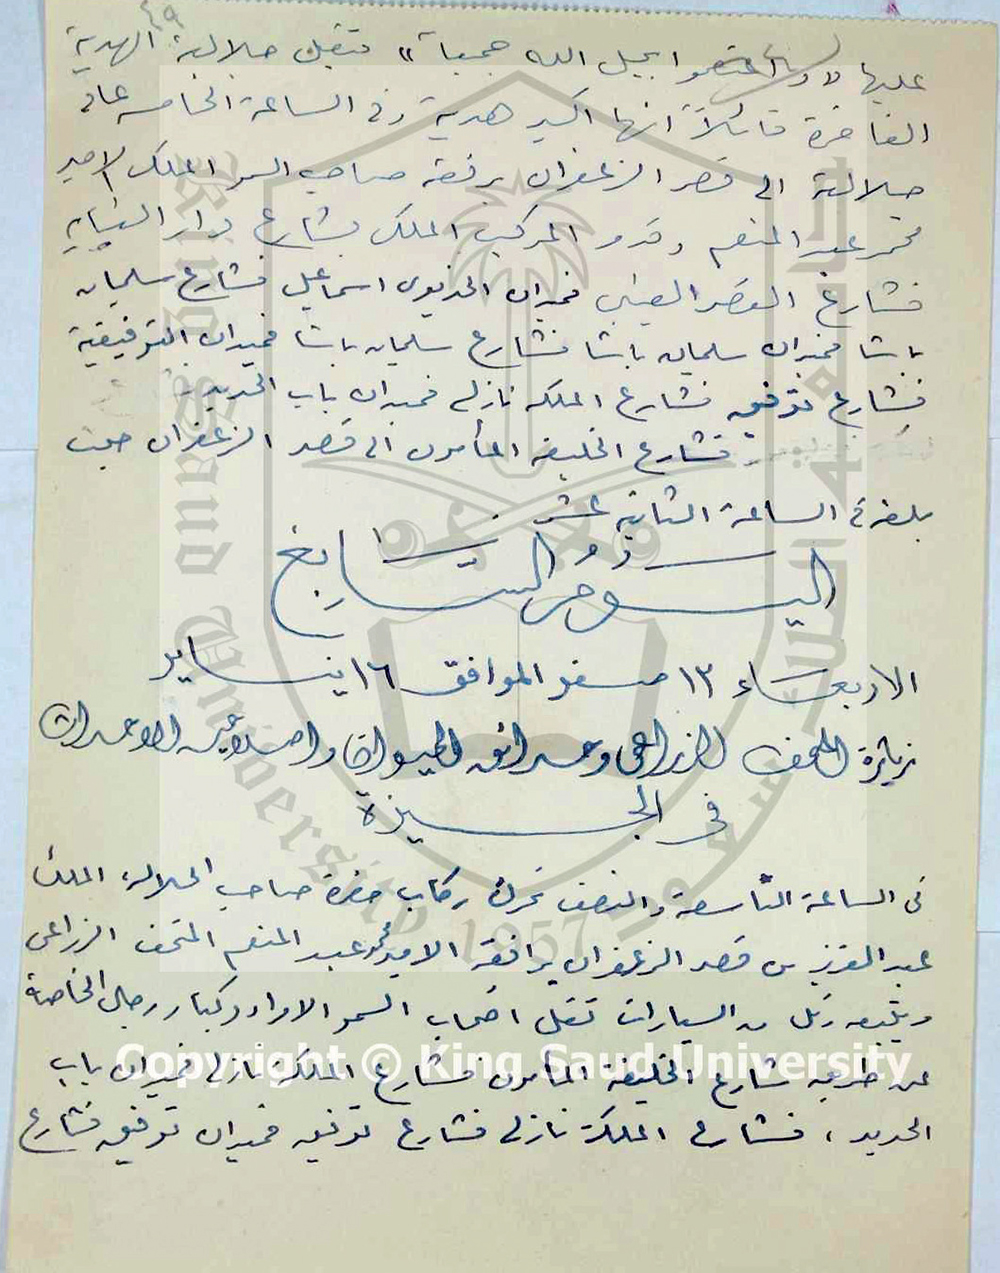 ٤٩
عليها لا واعتصموا بحبل الله جميعا" فتقبل جلالته الهدية
الفاخرة قائلاً انها اكبر هدية وفى الساعة الخامسه عاد
جلالته الى قصر الزعفران برفقة صاحب السمو الملكى الامير
محمد عبد المنعم المركب الملكى بشارع دار النيابه
فشارع القصر العينى فميدان الخديوى اسماعيل فشارع سليمان
باشا فميدان سليمان باشا فشارع سليمان باشا فميدان التوفيقية
فشارع توفيق فشارع الملكه نازلى فميدان باب الحديد
فشارع الخليفه المأمون الى قصر الزعفران حيث
بلغه فى الساعة الثانيه عشر
اليوم السابع
الاربعاء ١٣ صفر الموافق ١٦ يناير
زيارة المتحف الزراعى وحدائق الحيوان
فى الجيزة
فى الساعة التاسعة والنصف تحرك ركاب حضرة صاحب الجلالة الملك
عبد العزيز من قصر الزعفران يرافقه الامير محمد عبد المنعم المتحف الزراعى
ويتبعه رتل من السيارات تقل اصحاب السمو الامراء وكبار رجال الخاصة
عن طريق شارع الخليفة المأمون فشارع الملكة نازلى فميدان باب
الحديد، فشارع الملكة نازلى فشارع توفيق فميدان توفيق فشارع
Copyright © King Saud University
King Saud University
1957